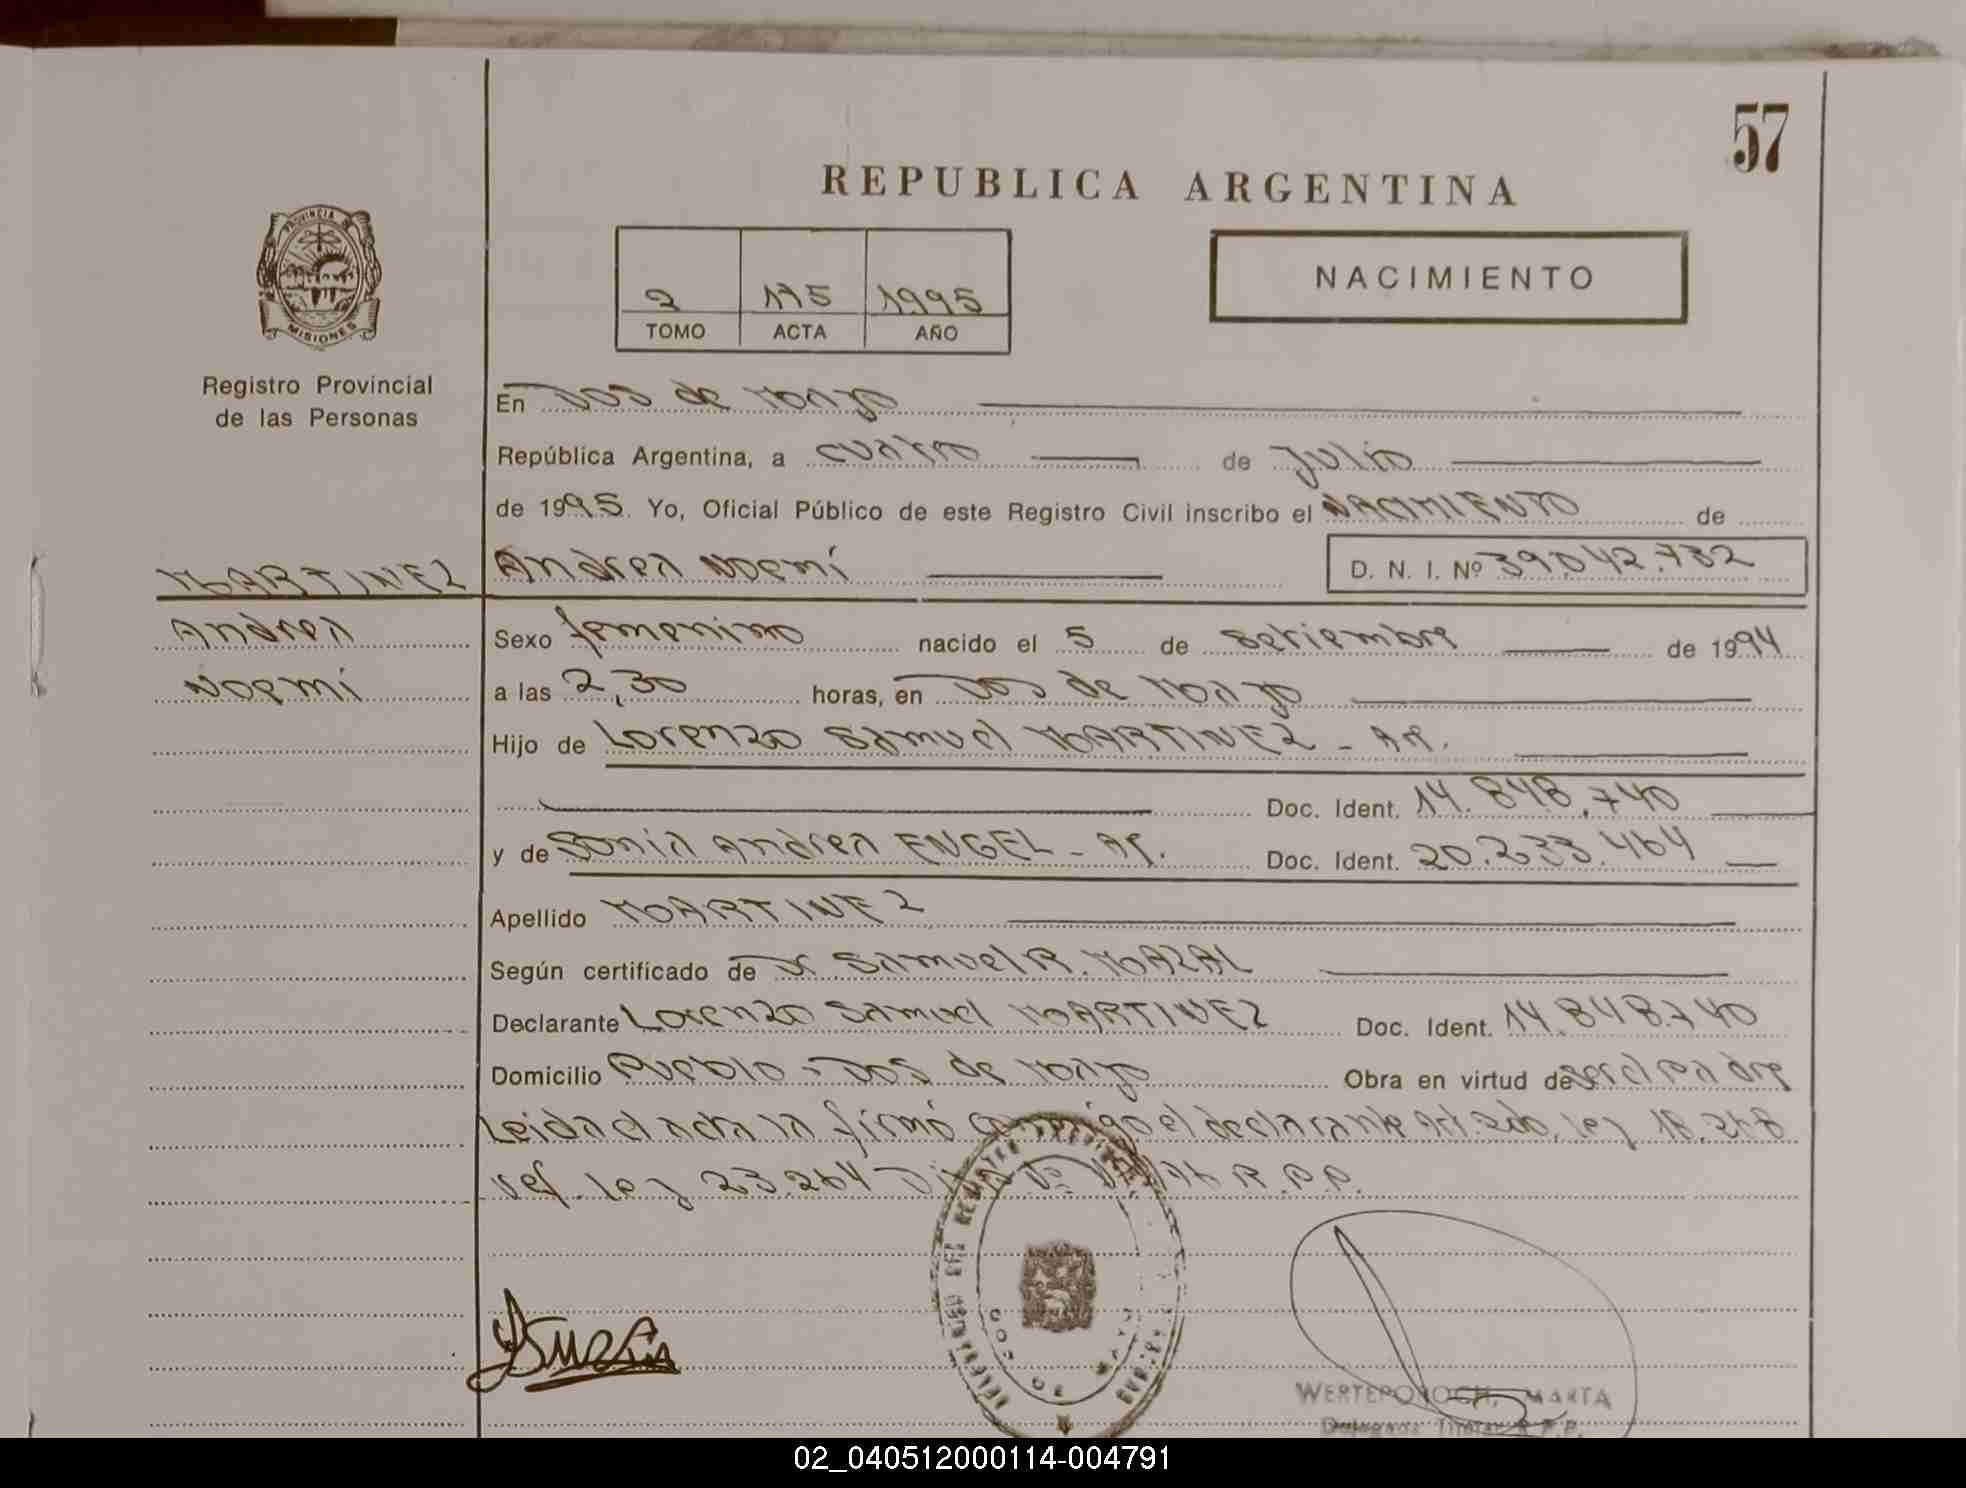 57
REPUBLICA ARGENTINA
PROVINCIA DE
MISIONES
Registro Provincial
de las Personas
NACIMIENTO
2 115 1995
TOMO ACTA AÑO
En Dos de Mayo
República Argentina, a cuatro de Julio
de 1995. Yo, Oficial Público de este Registro Civil inscribo el NACIMIENTO de
MARTINEZ Andrea Noemí D. N. I. Nº 39.042.732
Andrea Sexo femenino nacido el 5 de setiembre de 1994
Noemí a las 2,30 horas, en Dos de Mayo
Hijo de Lorenzo Samuel MARTINEZ - Ar.
Doc. Ident. 14.848.740
y de Sonia Andrea ENGEL - Ar. Doc. Ident. 20.233.464
Apellido MARTINEZ
Según certificado de Dr Samuel R. MAZAL
Declarante Lorenzo Samuel MARTINEZ Doc. Ident. 14.848.740
Domicilio Pueblo - Dos de Mayo Obra en virtud de ser el padre
Leida el acta la firmó conmigo el declarante Art. 2do. Ley 18.248
Ley 23.264 R.P.P.
WERTEPOROCH, MARTA
Delegada Titular R.P.P.
02_040512000114-004791